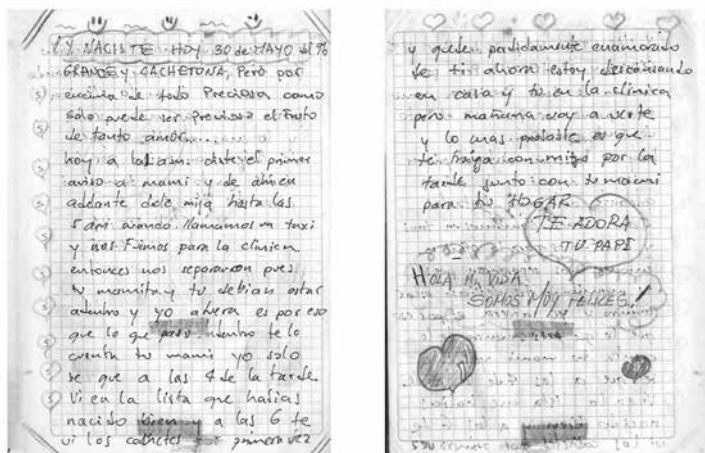 ¡Y NACISTE HOY 30 de MAYO del 96
GRANDE Y CACHETONA, Pero por
encima de todo Preciosa como
solo puede ser Precioso el Fruto
de tanto amor......
hoy a las am. diste el primer
aviso a mami y de ahí en
adelante dele mija hasta las
5 am cuando llamamos un taxi
y nos Fuimos para la clinica
entonces nos separaron pues
tu mamita y tu debian estar
adentro y yo afuera es por eso
que lo que paso adentro te lo
cuenta tu mami yo solo
se que a las 4 de la tarde
Vi en la lista que habias
nacido bien y a las 6 te
vi los cachetes por primera vez
y quede perdidamente enamorado
de ti ahora estoy descansando
en casa y tu en la clinica
pero mañana voy a verte
y lo mas probable es que
te traiga conmigo por la
tarde junto con tu mami
para tu HOGAR
TE ADORA
TU PAPI
HOLA MI VIDA
SOMOS MUY FELICES!